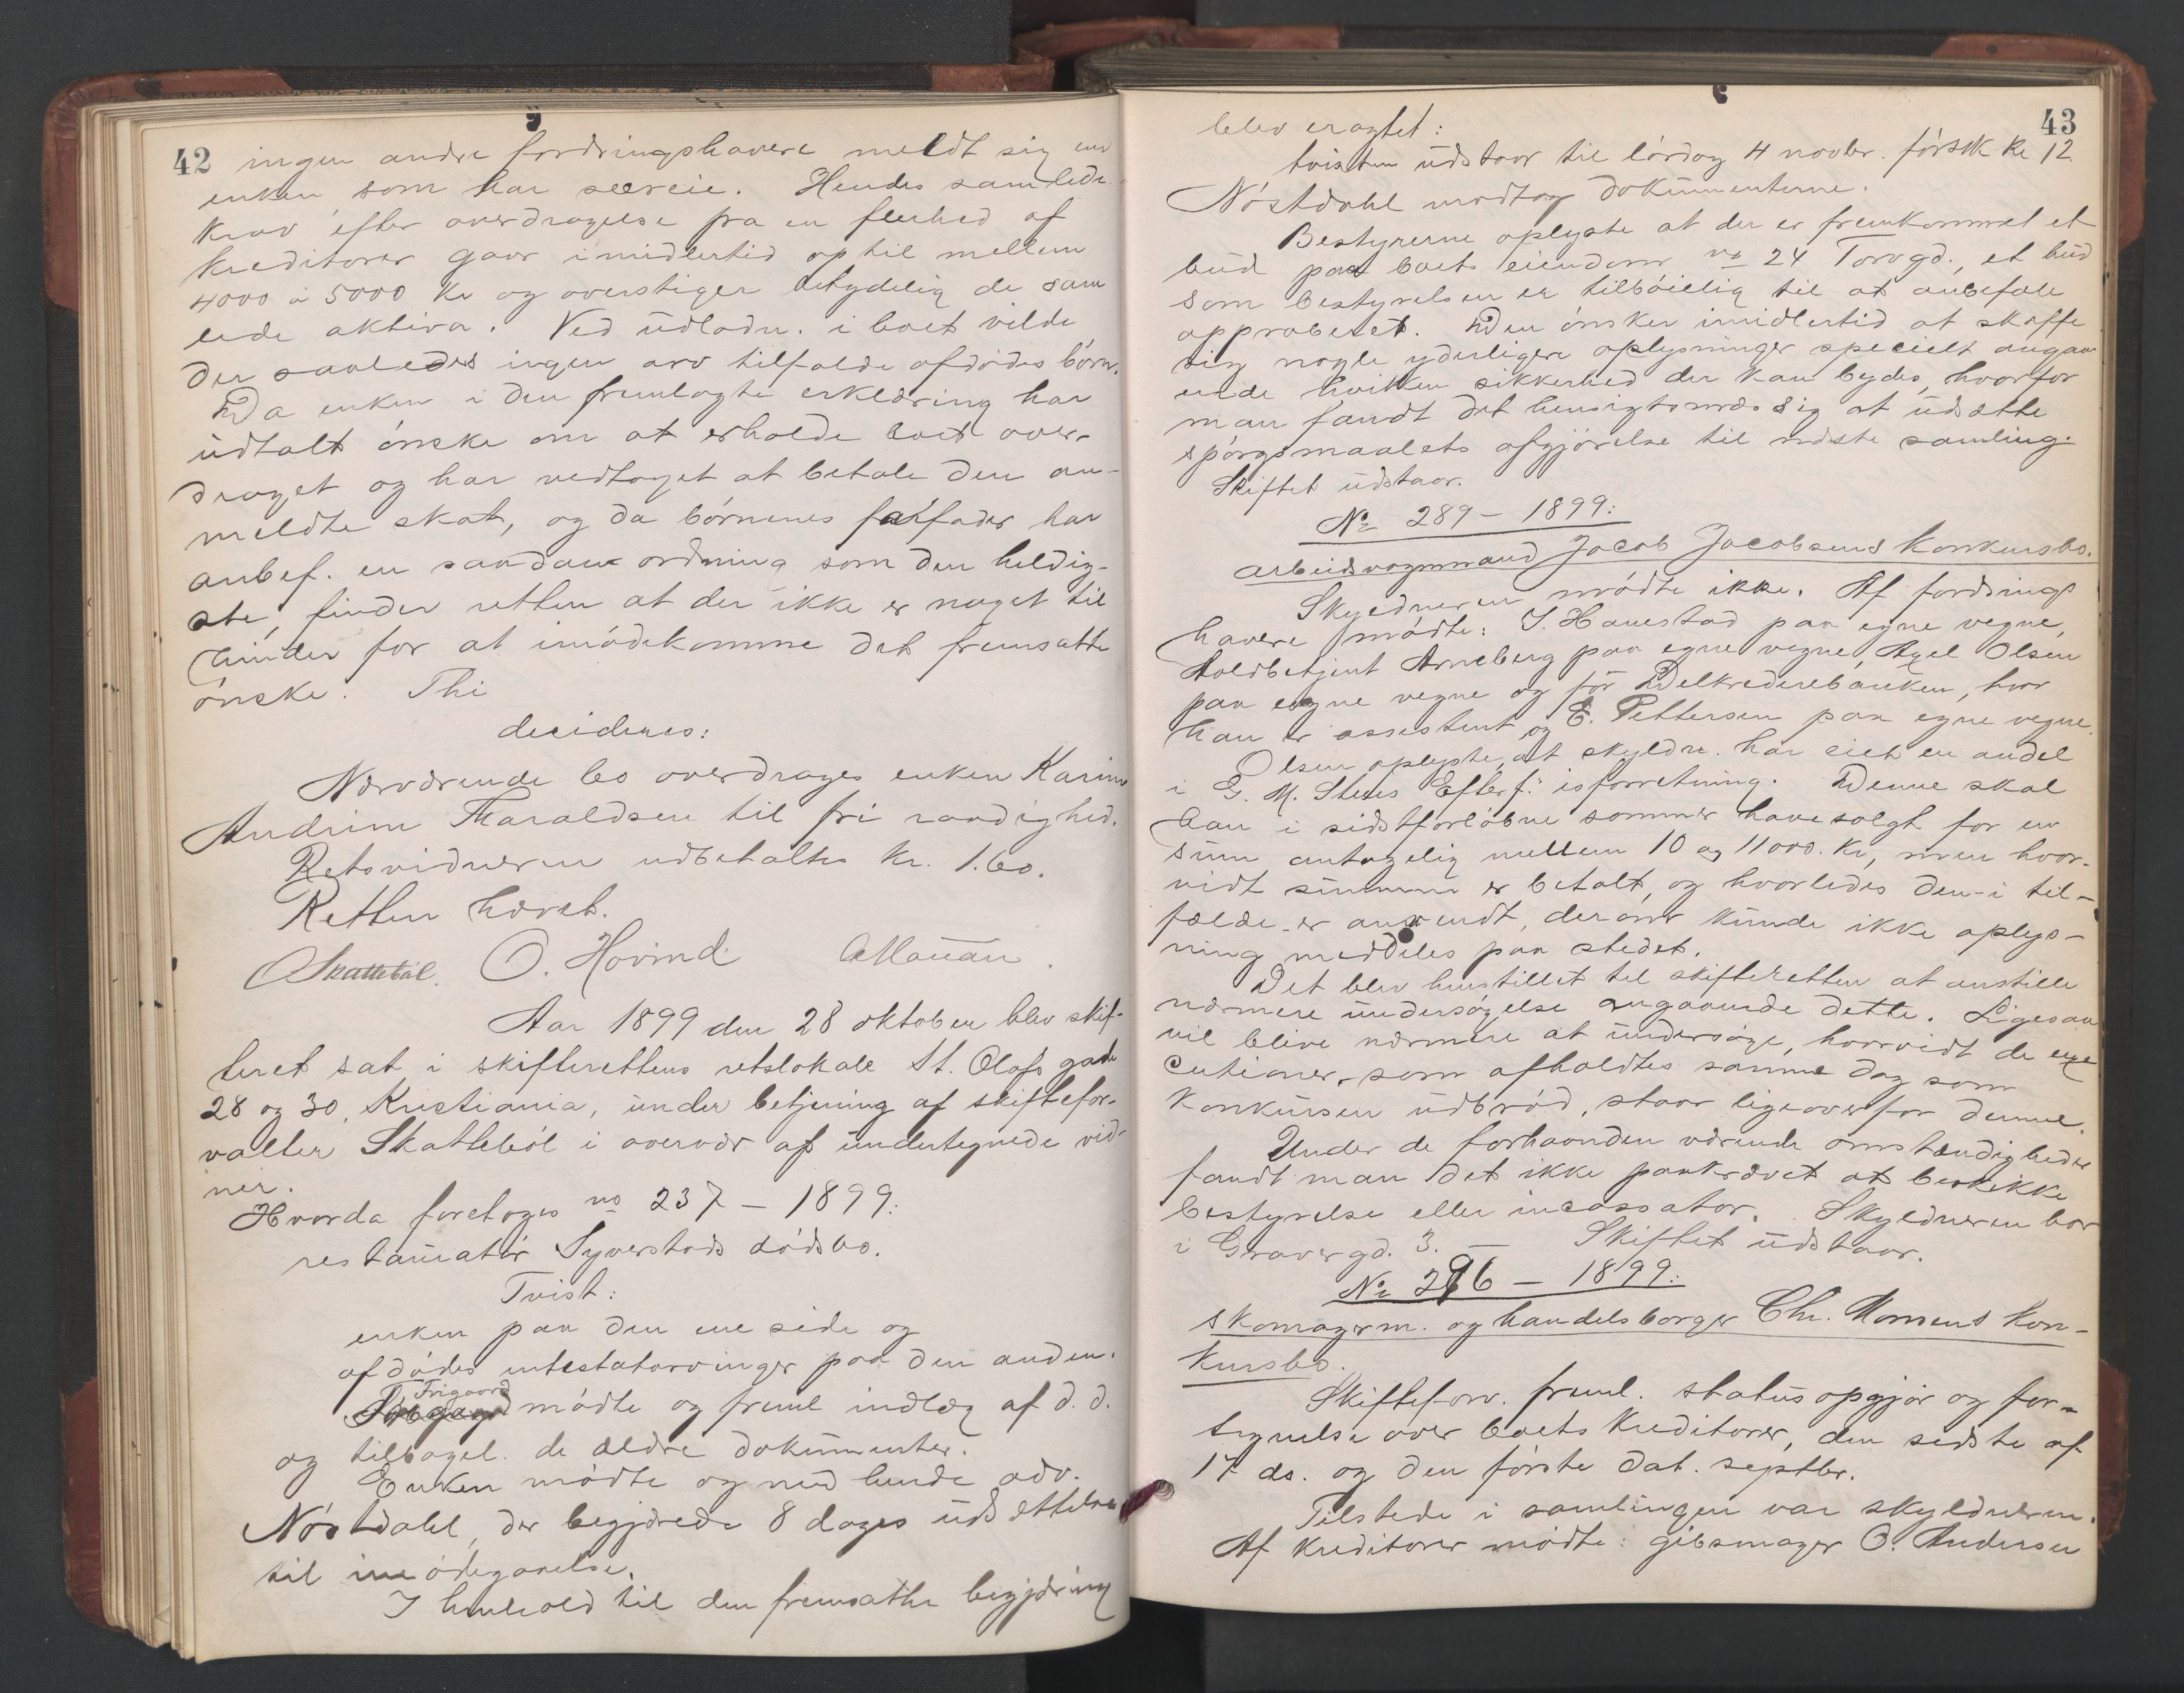 42
ingen andre fordringshavere meldt sig end
enken som har særeie. Hendes samlede
krav efter overdragelse fra en flerhed af
kreditorer gaar imidlertid op til mellem
4000 à 5000 kr og overstiger betydelig de sam
lede aktiva. Ved udlodn. i boet vilde
der saaledes ingen arv tilfalde afdødes børn.
Da enken i den fremlagte erklæring har
udtalt ønske om at erholde boet over-
draget og har vedtaget at betale den an-
meldte skat, og da børnenes farfader har
anbef. en saadan ordning som den heldig-
ste, finder retten at der ikke er noget til
hinder for at imødekomme det fremsatte
ønske. Thi
decideres:
Nærværende bo overdrages enken Karine
Andrine Haraldsen til fri raadighed.
Retsvidnerne udbetaltes kr. 1.60.
Retten hævet.
Skattebøl. O. Hovind
Aar 1899 den 28 oktober blev skif-
teret sat i skifterettens retslokale St. Olafs gade
28 og 30, Kristiania, under betjening af skiftefor-
valter Skattebøl i overvær af undertegnede vid-
ner.
Hvorda foretoges no 237 – 1899:
restauratør Syverstads dødsbo.
Tvist:
enken paa den ene side og
afdødes intestatarvinger paa den anden.
Frigaard
mødte og freml indlæg af d. d.
og tilbagel. de ældre dokumenter.
Enken mødte og med hende adv.
Nøstdahl, der begjærede 8 dages udsættelse
til imødegaaelse.
I henhold til den fremsatte begjæring
43
blev eragtet:
tvisten udstaar til lørdag 4 novbr. førstk kl 12
Nøstdahl modtog dokumenterne.
Bestyrerne oplyste at der er fremkommet et
bud paa boets eiendom no 24 Torvgd., et bud
som bestyrelsen er tilbøielig til at anbefale
approberet. Den ønsker imidlertid at skaffe
sig nogle yderligere oplysninger specielt angaa
ende hvilken sikkerhed der kan bydes, hvorfor
man fandt det hensigtsmæssig at udsætte
spørgsmaalets afgjørelse til næste samling.
Skiftet udstaar.
No 289 – 1899:
arbeidsvognmand Jacob Jacobsens konkursbo.
Skyldneren mødte ikke. Af fordrings
havere mødte: J. Hanestad paa egne vegne,
toldbetjent Arneberg paa egne vegne, Axel Olsen
paa egne vegne og for Delkrederebanken, hvor
han er assistent, og E. Pettersen paa egne vegne.
Olsen oplyste, at skyldn. har eiet en andel
i G. M. Steens Efterf.s isforretning. Denne skal
han i sidstforløbne sommer have solgt for en
sum antagelig mellem 10 og 11000 kr, men hvor-
vidt summen er betalt, og hvorledes den – i til-
fælde – er anvendt, derom kunde ikke oplys-
ning meddeles paa stedet.
Det blev henstillet til skifteretten at anstille
nærmere undersøgelse angaaende dette. Ligesaa
vil blive nærmere at undersøge, hvorvidt de exe
cutioner, som afholdtes samme dag som
konkursen udbrød, staar ligeoverfor denne.
Under de forhaanden værende omstændigheder
fandt man det ikke paakrævet at beskikke
bestyrelse eller incassator. Skyldneren bor
i Gravergd. 3. — Skiftet udstaar.
No 296 – 1899:
skomagerm. og handelsborger Chr. Monsens kon-
kursbo.
Skifteforv. freml. statusopgjør og for-
tegnelse over boets kreditorer, den sidste af
17 ds. og den første dat. septbr.
Tilstede i samlingen var skyldneren.
Af kreditorer mødte: gibsmager O. Andersen